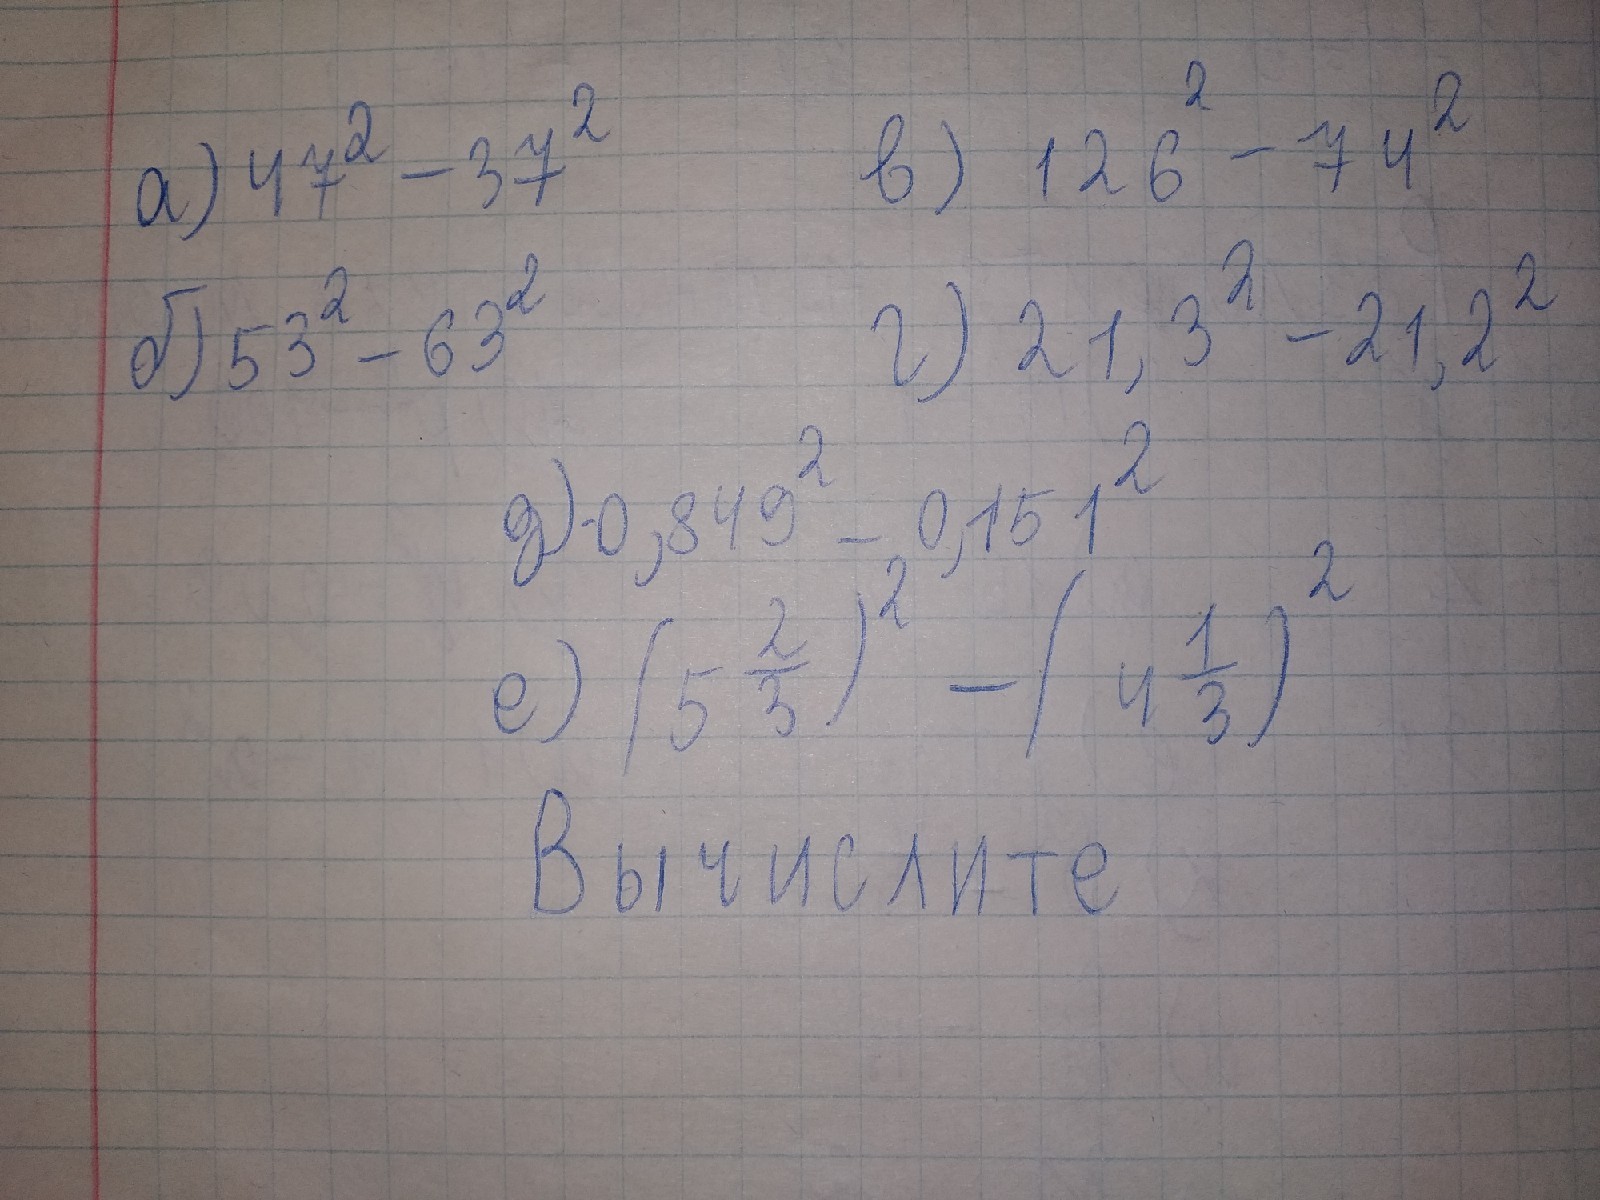 а) 47² - 37² в) 126² - 74²
б) 53² - 63² г) 21,3² - 21,2²
д) 0,849² - 0,151²
е) (5 2/3)² - (4 1/3)²
Вычислите